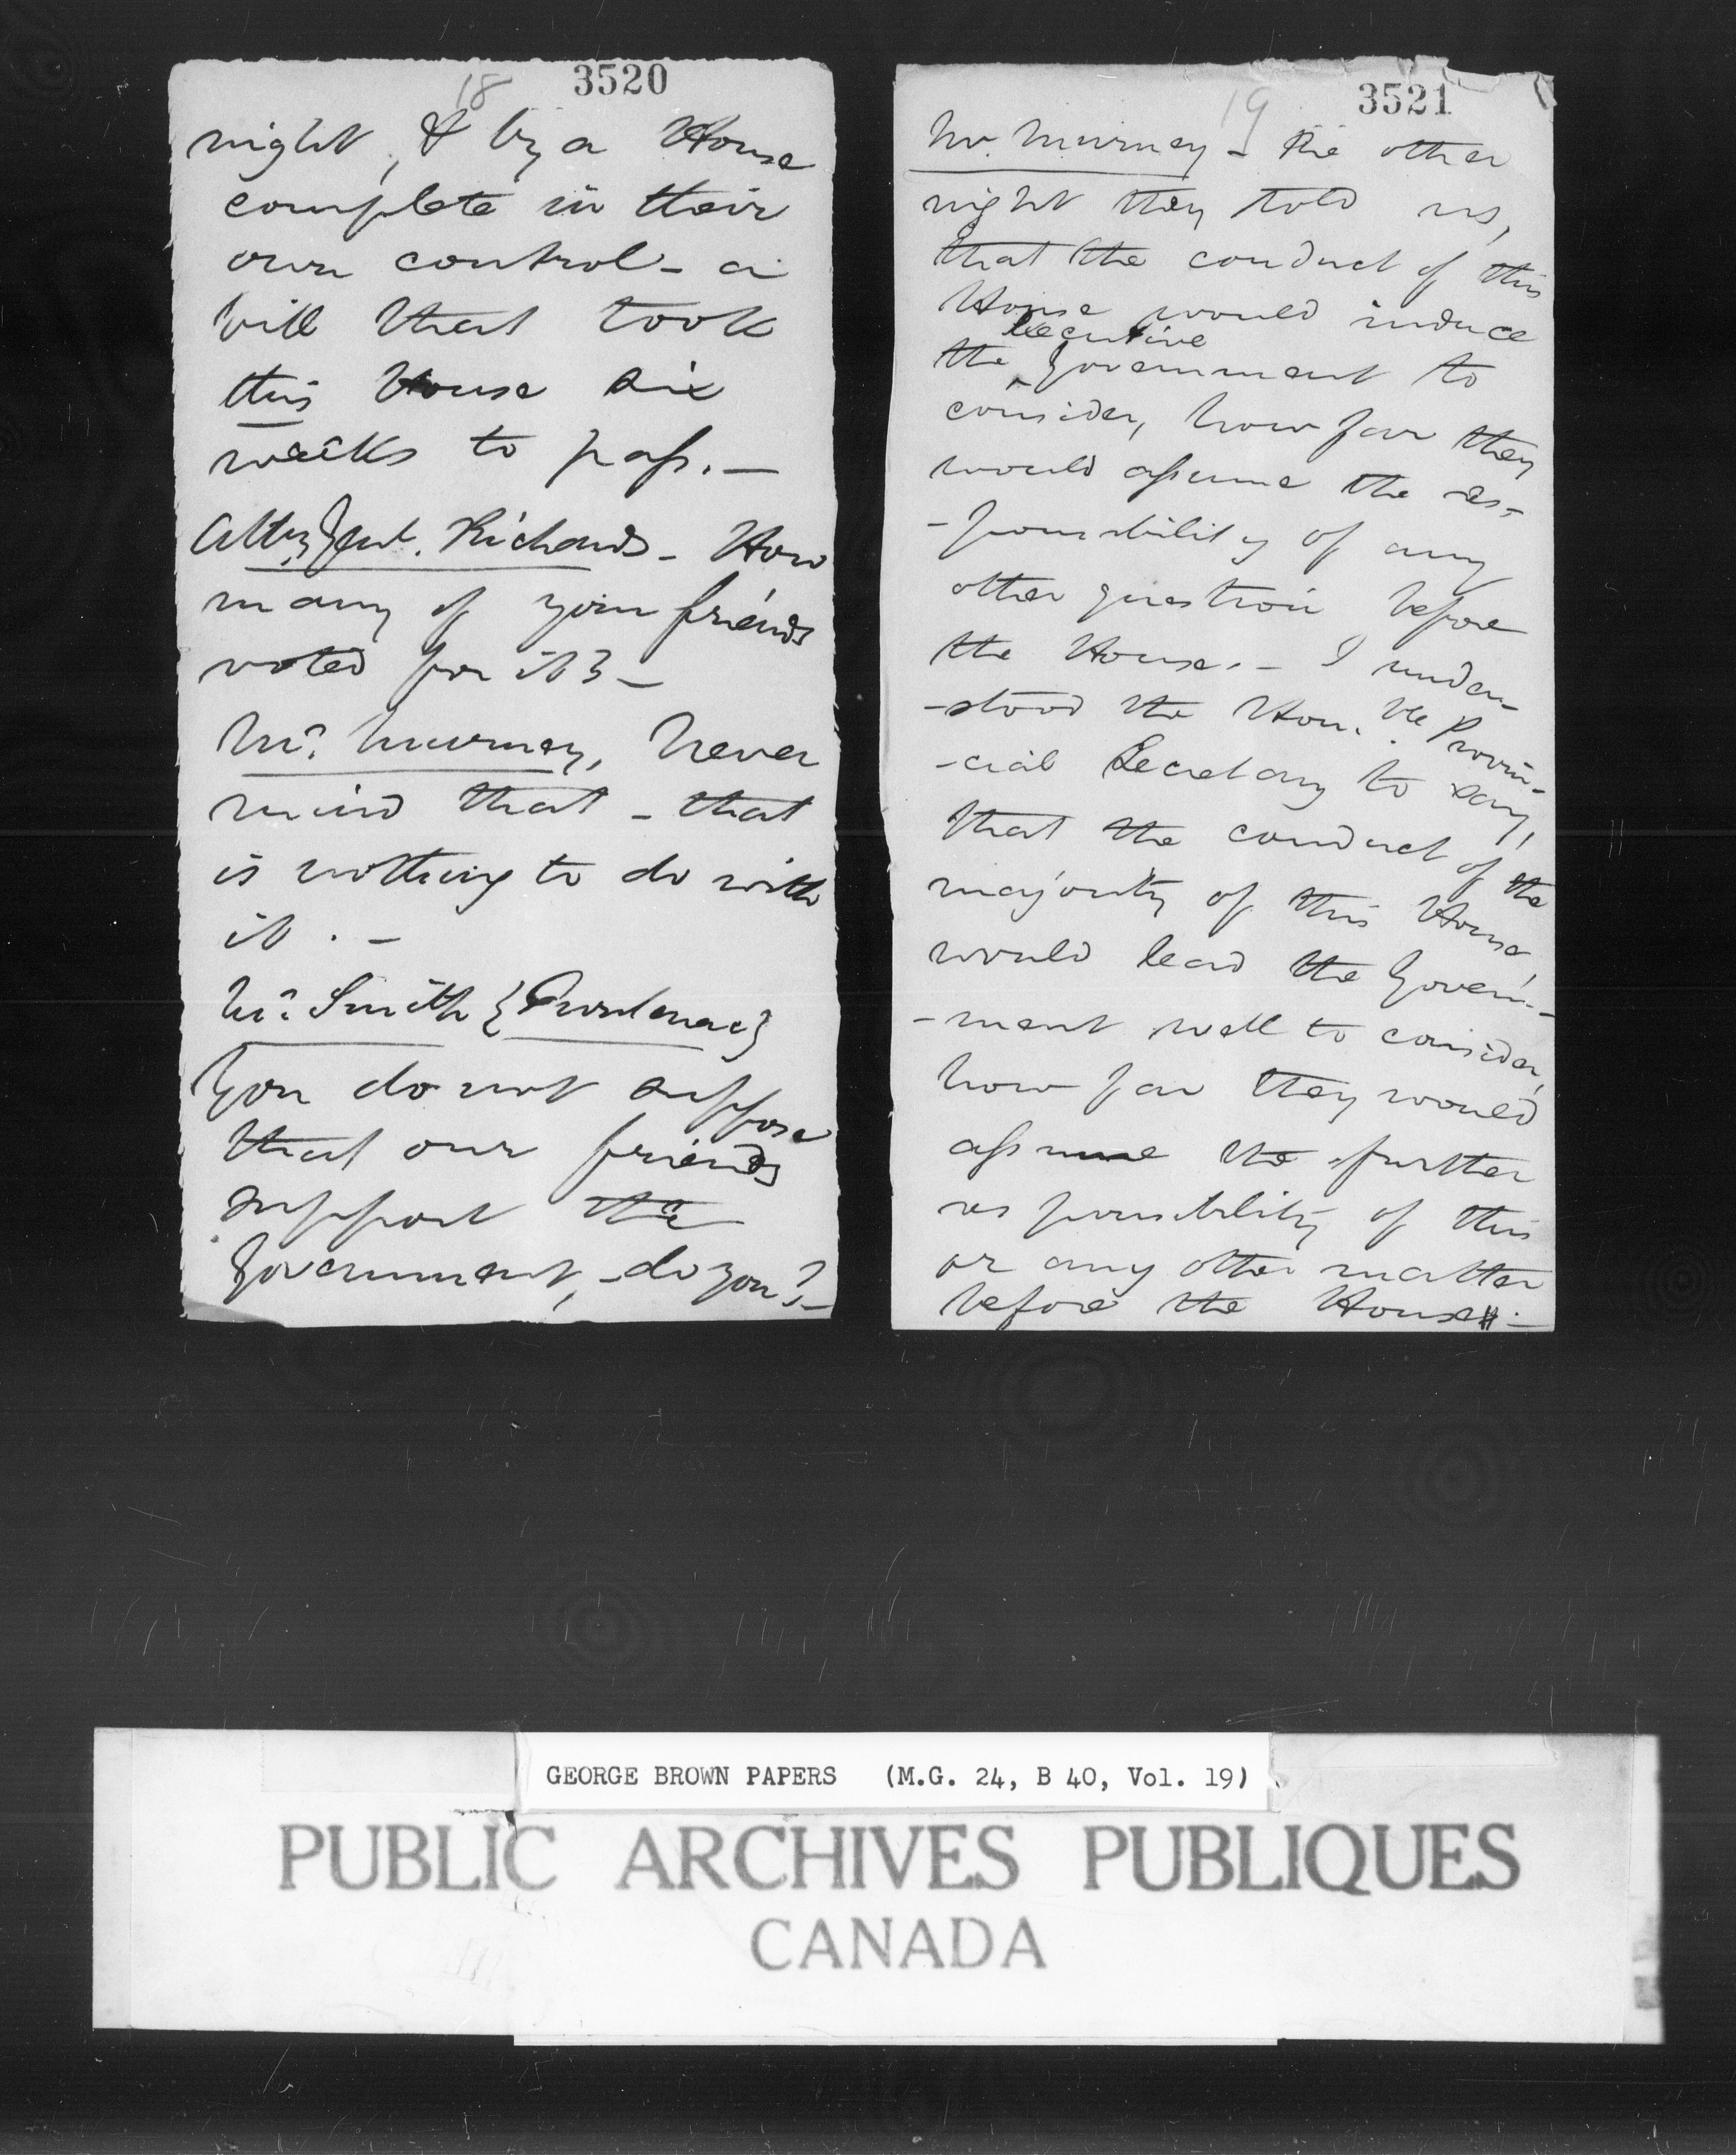 18
3520
night, & by a House
complete in their
own control - a
bill that took
this House six
weeks to pass. -
Atty Genl. Richards - How
many of your friends
voted for it? -
Mr. Murney, Never
mind that - that
is nothing to do with
it. -
Mr. Smith {Frontenac}
You do not suppose
that our friends
support the
Government, - do you? -
19
3521
Mr. Murney - The other
night they told us,
that the conduct of this
House would induce
Executive
the ^ Government to
consider, how far they
would assume the res-
-ponsibility of any
other question before
the House. - I under-
-stood the Hon. the Provin-
-cial Secretary to say,
that the conduct of the
majority of this House,
would lead the Govern-
-ment well to consider,
how far they would
assume the further
responsibility of this
or any other matter
before the House. -
GEORGE BROWN PAPERS (M.G. 24, B 40, Vol. 19)
PUBLIC ARCHIVES PUBLIQUES
CANADA